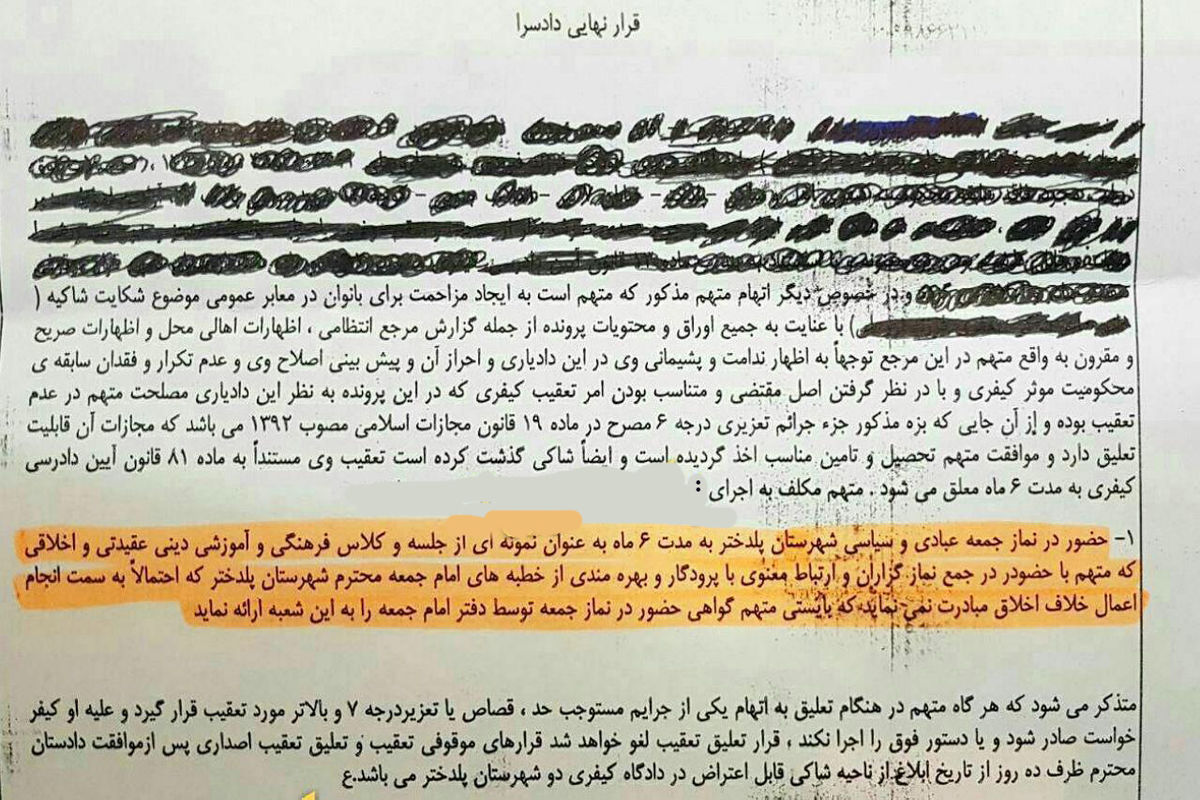 قرار نهایی دادسرا
و در خصوص دیگر اتهام متهم مذکور که متهم است به ایجاد مزاحمت برای بانوان در معابر عمومی موضوع شکایت شاکیه (
) با عنایت به جمیع اوراق و محتویات پرونده از جمله گزارش مرجع انتظامی ، اظهارات اهالی محل و اظهارات صریح
و مقرون به واقع متهم در این مرجع توجهاً به اظهار ندامت و پشیمانی وی در این دادیاری و احراز آن و پیش بینی اصلاح وی و عدم تکرار و فقدان سابقه ی
محکومیت موثر کیفری و با در نظر گرفتن اصل مقتضی و متناسب بودن امر تعقیب کیفری که در این پرونده به نظر این دادیاری مصلحت متهم در عدم
تعقیب بوده و از آن جایی که بزه مذکور جزء جرائم تعزیری درجه ۶ مصرح در ماده ۱۹ قانون مجازات اسلامی مصوب ۱۳۹۲ می باشد که مجازات آن قابلیت
تعلیق دارد و موافقت متهم تحصیل و تامین مناسب اخذ گردیده است و ایضاً شاکی گذشت کرده است تعقیب وی مستنداً به ماده ۸۱ قانون آیین دادرسی
کیفری به مدت ۶ ماه معلق می شود . متهم مکلف به اجرای :
۱- حضور در نماز جمعه عبادی و سیاسی شهرستان پلدختر به مدت ۶ ماه به عنوان نمونه ای از جلسه و کلاس فرهنگی و آموزشی دینی عقیدتی و اخلاقی
که متهم با حضودر در جمع نماز گزاران و ارتباط معنوی با پرودگار و بهره مندی از خطبه های امام جمعه محترم شهرستان پلدختر که احتمالاً به سمت انجام
اعمال خلاف اخلاق مبادرت نمی نماید که بایستی متهم گواهی حضور در نماز جمعه توسط دفتر امام جمعه را به این شعبه ارائه نماید
متذکر می شود که هر گاه متهم در هنگام تعلیق به اتهام یکی از جرایم مستوجب حد ، قصاص یا تعزیردرجه ۷ و بالاتر مورد تعقیب قرار گیرد و علیه او کیفر
خواست صادر شود و یا دستور فوق را اجرا نکند ، قرار تعلیق تعقیب لغو خواهد شد قرارهای موقوفی تعقیب و تعلیق تعقیب اصداری پس ازموافقت دادستان
محترم ظرف ده روز از تاریخ ابلاغ از ناحیه شاکی قابل اعتراض در دادگاه کیفری دو شهرستان پلدختر می باشد.ع